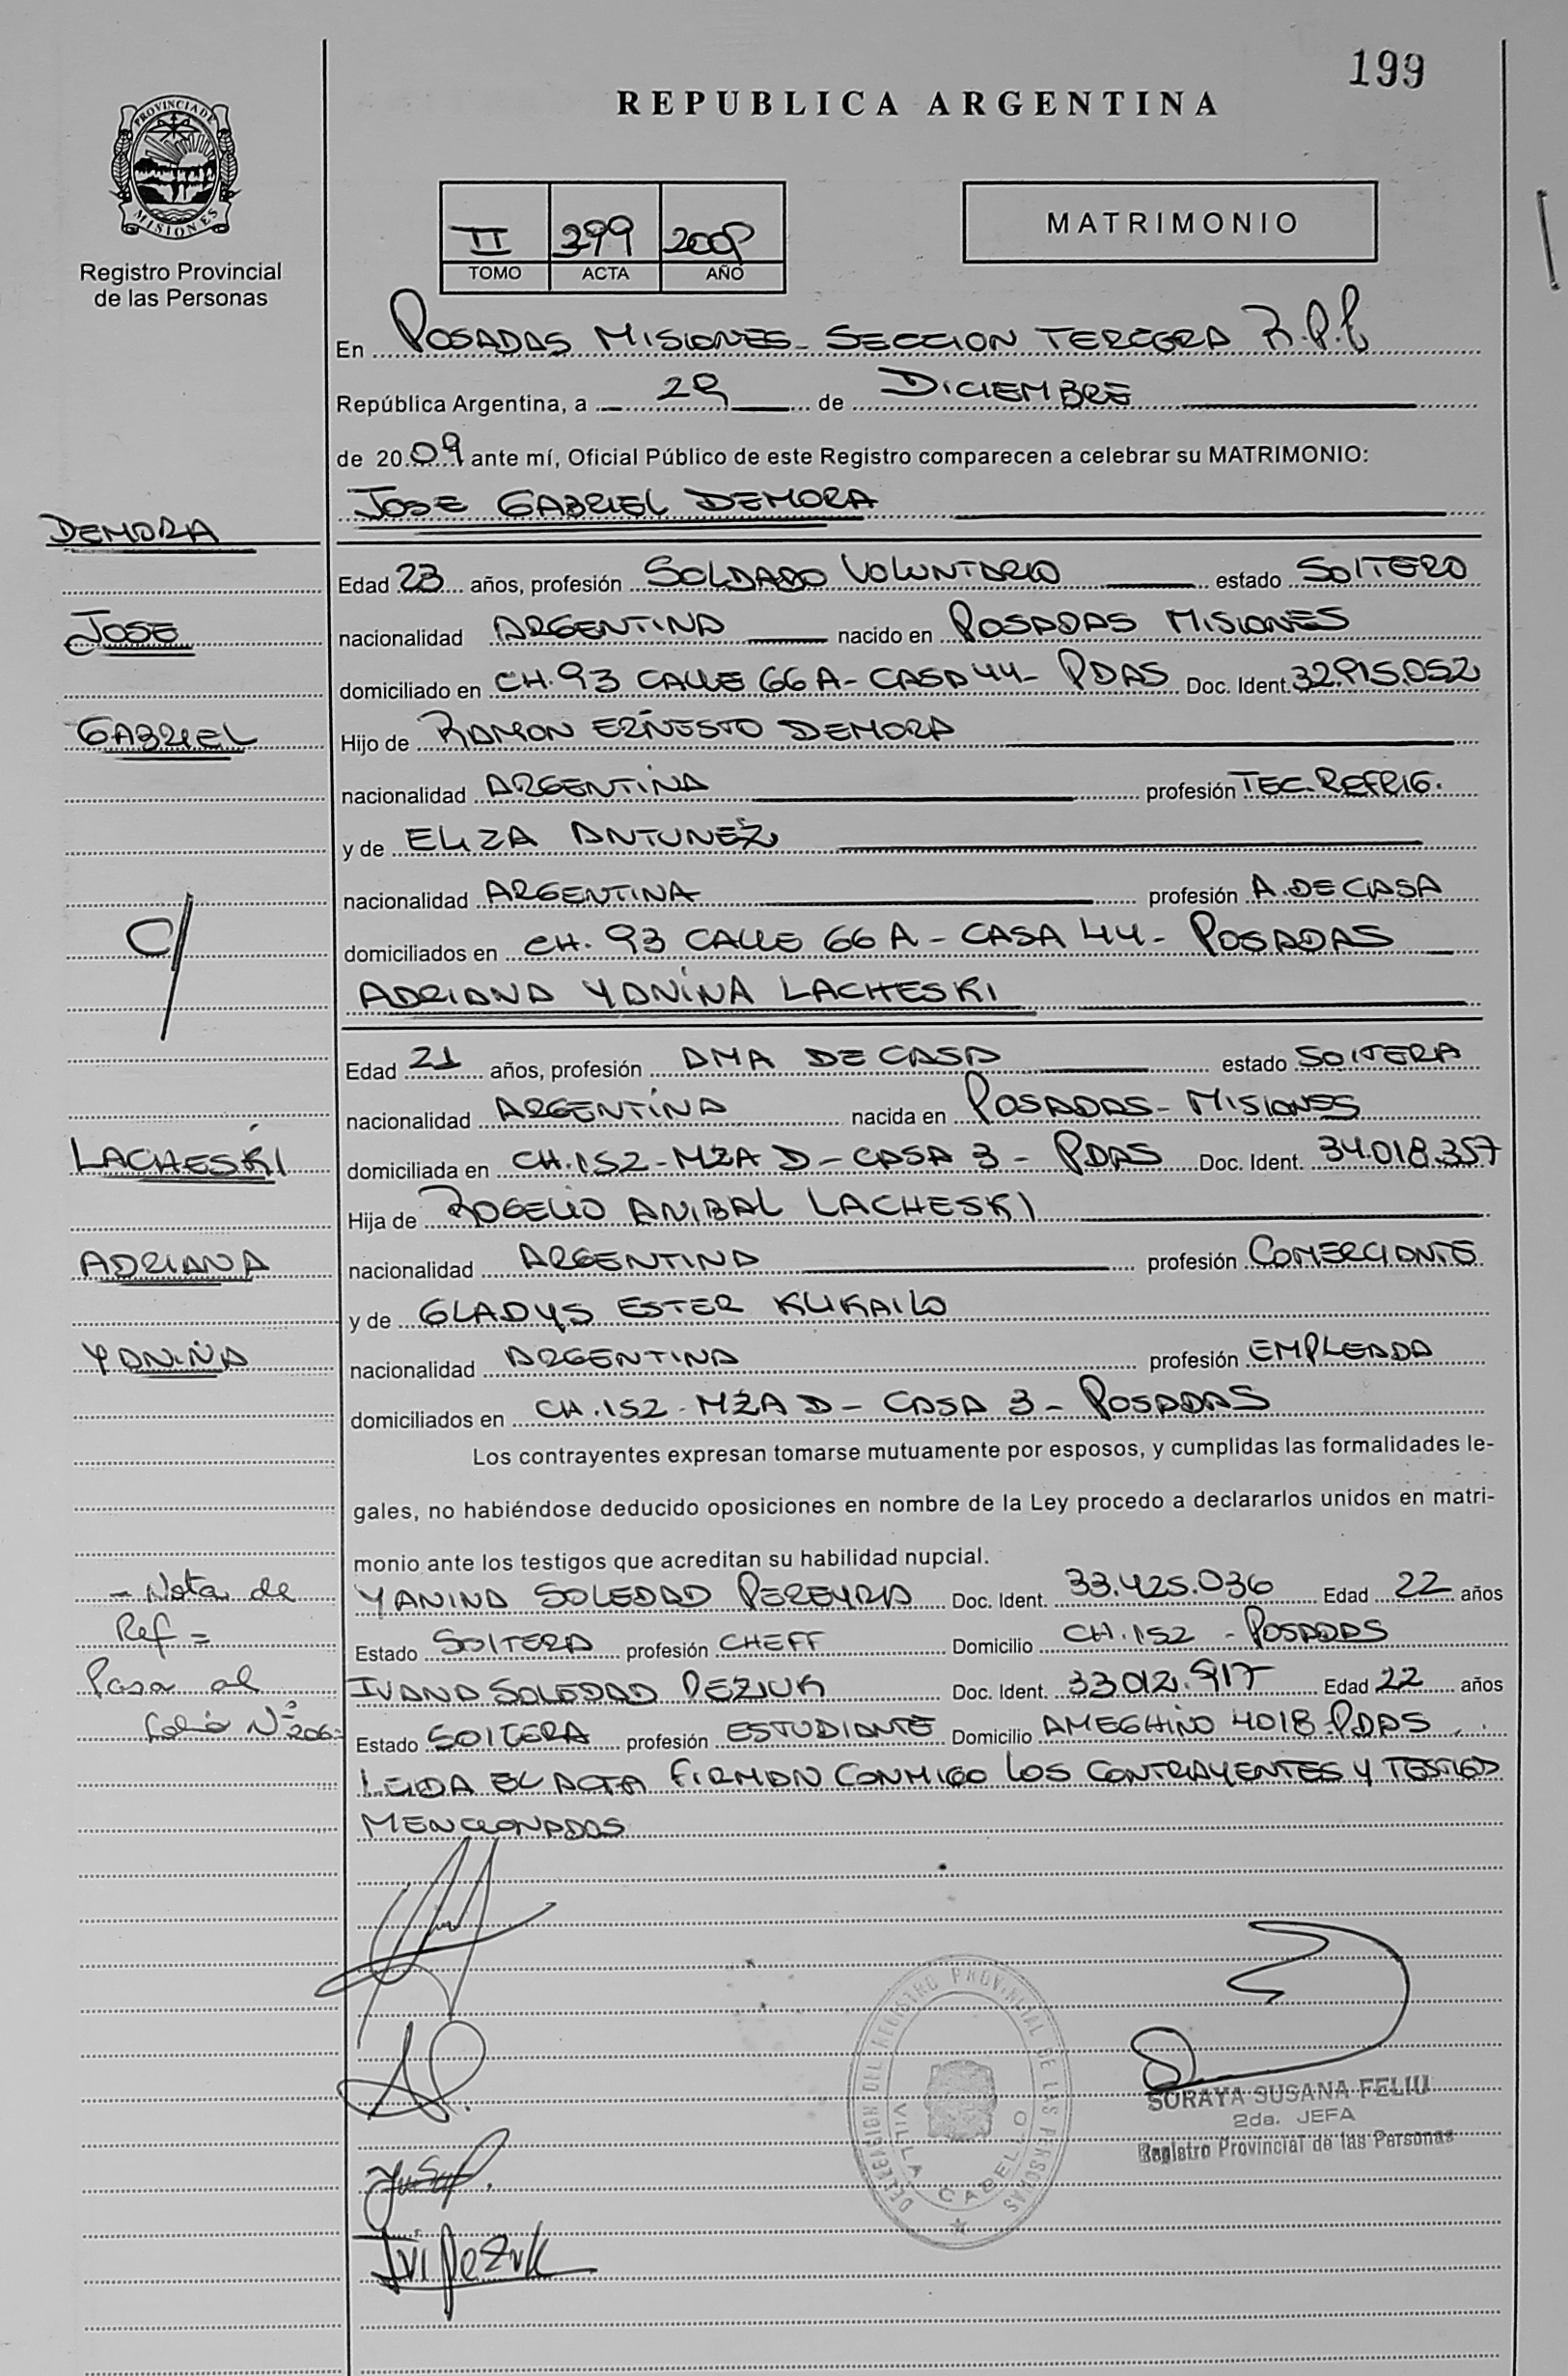 199
REPUBLICA ARGENTINA
PROVINCIA DE MISIONES
Registro Provincial
de las Personas
II 399 2009
TOMO ACTA AÑO
MATRIMONIO
En POSADAS MISIONES - SECCION TERCERA R.P.P
República Argentina, a 29 de DICIEMBRE
de 2009 ante mí, Oficial Público de este Registro comparecen a celebrar su MATRIMONIO:
JOSE GABRIEL DEMORA
DEMORA
Edad 23 años, profesión SOLDADO VOLUNTARIO estado SOLTERO
JOSE
nacionalidad ARGENTINA nacido en POSADAS MISIONES
domiciliado en CH. 93 CALLE 66 A - CASA 44 - PDAS Doc. Ident. 32.915.052
GABRIEL
Hijo de RAMON ERNESTO DEMORA
nacionalidad ARGENTINA profesión TEC. REFRIG.
y de ELIZA ANTUNEZ
nacionalidad ARGENTINA profesión A. DE CASA
C/
domiciliados en CH. 93 CALLE 66 A - CASA 44 - POSADAS
ADRIANA YANINA LACHESKI
Edad 21 años, profesión AMA DE CASA estado SOLTERA
nacionalidad ARGENTINA nacida en POSADAS - MISIONES
LACHESKI
domiciliada en CH. 152 - MZA D - CASA 3 - PDAS Doc. Ident. 34.018.357
Hija de ROGELIO ANIBAL LACHESKI
ADRIANA
nacionalidad ARGENTINA profesión COMERCIANTE
y de GLADYS ESTER KUKAILO
YANINA
nacionalidad ARGENTINA profesión EMPLEADA
domiciliados en CH. 152 - MZA D - CASA 3 - POSADAS
Los contrayentes expresan tomarse mutuamente por esposos, y cumplidas las formalidades le-
gales, no habiéndose deducido oposiciones en nombre de la Ley procedo a declararlos unidos en matri-
monio ante los testigos que acreditan su habilidad nupcial.
- Nota de
Ref =
Pasa al
folio Nº 206=
YANINA SOLEDAD PEREYRA Doc. Ident. 33.425.036 Edad 22 años
Estado SOLTERA profesión CHEFF Domicilio CH. 152 - POSADAS
IVANA SOLEDAD PEZIUK Doc. Ident. 33.012.917 Edad 22 años
Estado SOLTERA profesión ESTUDIANTE Domicilio AMEGHINO 4018 - PDAS
LEIDA EL ACTA FIRMAN CONMIGO LOS CONTRAYENTES Y TESTIGOS
MENCIONADOS
DELEGACION DEL REGISTRO PROVINCIAL DE LAS PERSONAS
VILLA CABELLO
SORAYA SUSANA FELIU
2da. JEFA
Registro Provincial de las Personas